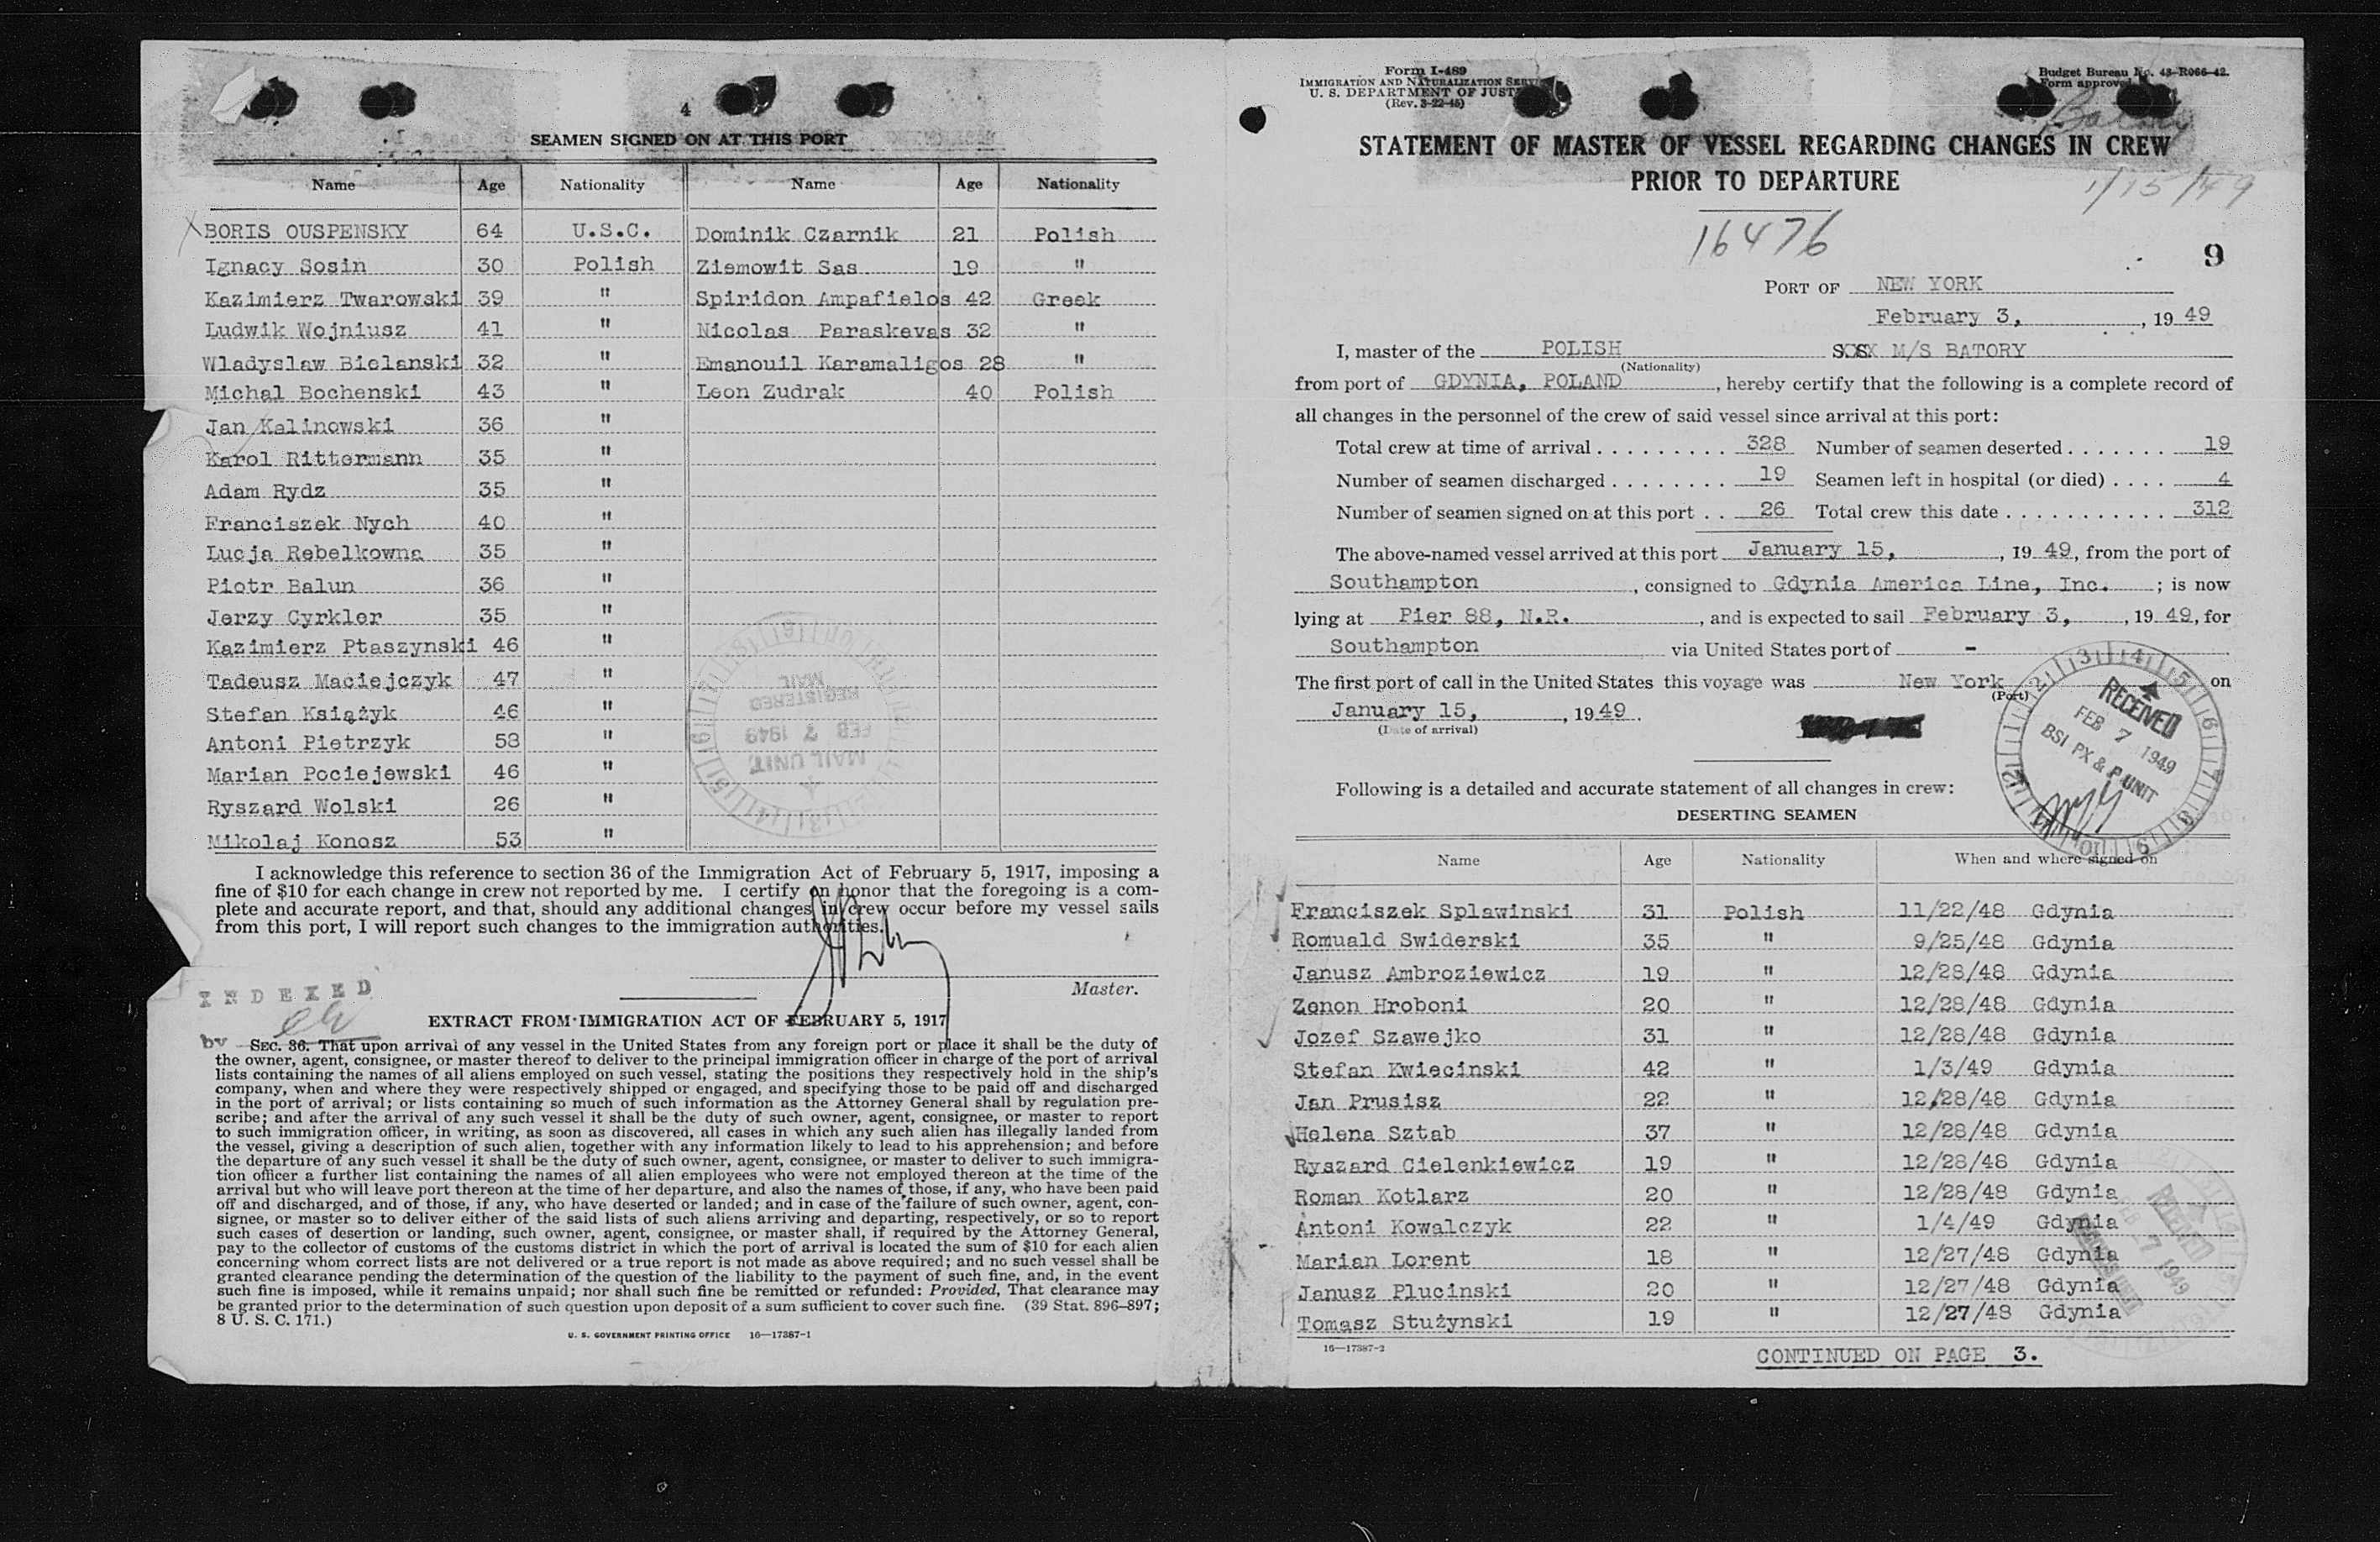 4
SEAMEN SIGNED ON AT THIS PORT
Name Age Nationality Name Age Nationality
BORIS OUSPENSKY 64 U.S.C. Dominik Czarnik 21 Polish
Ignacy Sosin 30 Polish Ziemowit Sas 19 "
Kazimierz Twarowski 39 " Spiridon Ampafielos 42 Greek
Ludwik Wojniusz 41 " Nicolas Paraskevas 32 "
Wladyslaw Bielanski 32 " Emanouil Karamaligos 28 "
Michal Bochenski 43 " Leon Zudrak 40 Polish
Jan Kalinowski 36 "
Karol Rittermann 35 "
Adam Rydz 35 "
Franciszek Nych 40 "
Lucja Rebelkowna 35 "
Piotr Balun 36 "
Jerzy Cyrkler 35 "
Kazimierz Ptaszynski 46 "
Tadeusz Maciejczyk 47 "
Stefan Książyk 46 "
Antoni Pietrzyk 53 "
Marian Pociejewski 46 "
Ryszard Wolski 26 "
Mikolaj Konosz 53 "
REGISTERED
MAIL
FEB 7 1949
MAIL UNIT
I acknowledge this reference to section 36 of the Immigration Act of February 5, 1917, imposing a
fine of $10 for each change in crew not reported by me. I certify on honor that the foregoing is a com-
plete and accurate report, and that, should any additional changes in crew occur before my vessel sails
from this port, I will report such changes to the immigration authorities.
Master.
INDEXED
by
EXTRACT FROM IMMIGRATION ACT OF FEBRUARY 5, 1917
SEC. 36. That upon arrival of any vessel in the United States from any foreign port or place it shall be the duty of
the owner, agent, consignee, or master thereof to deliver to the principal immigration officer in charge of the port of arrival
lists containing the names of all aliens employed on such vessel, stating the positions they respectively hold in the ship's
company, when and where they were respectively shipped or engaged, and specifying those to be paid off and discharged
in the port of arrival; or lists containing so much of such information as the Attorney General shall by regulation pre-
scribe; and after the arrival of any such vessel it shall be the duty of such owner, agent, consignee, or master to report
to such immigration officer, in writing, as soon as discovered, all cases in which any such alien has illegally landed from
the vessel, giving a description of such alien, together with any information likely to lead to his apprehension; and before
the departure of any such vessel it shall be the duty of such owner, agent, consignee, or master to deliver to such immigra-
tion officer a further list containing the names of all alien employees who were not employed thereon at the time of the
arrival but who will leave port thereon at the time of her departure, and also the names of those, if any, who have been paid
off and discharged, and of those, if any, who have deserted or landed; and in case of the failure of such owner, agent, con-
signee, or master so to deliver either of the said lists of such aliens arriving and departing, respectively, or so to report
such cases of desertion or landing, such owner, agent, consignee, or master shall, if required by the Attorney General,
pay to the collector of customs of the customs district in which the port of arrival is located the sum of $10 for each alien
concerning whom correct lists are not delivered or a true report is not made as above required; and no such vessel shall be
granted clearance pending the determination of the question of the liability to the payment of such fine, and, in the event
such fine is imposed, while it remains unpaid; nor shall such fine be remitted or refunded: Provided, That clearance may
be granted prior to the determination of such question upon deposit of a sum sufficient to cover such fine. (39 Stat. 896–897;
8 U. S. C. 171.)
U. S. GOVERNMENT PRINTING OFFICE 16—17387-1
Form I-489
IMMIGRATION AND NATURALIZATION SERV
U. S. DEPARTMENT OF JUST
(Rev. 3-22-45)
Budget Bureau No. 43-R066-42.
Form approved
Batory
1/15/49
STATEMENT OF MASTER OF VESSEL REGARDING CHANGES IN CREW
PRIOR TO DEPARTURE
16476
9
PORT OF NEW YORK
February 3, , 19 49
I, master of the POLISH M/S BATORY
(Nationality)
from port of GDYNIA, POLAND , hereby certify that the following is a complete record of
all changes in the personnel of the crew of said vessel since arrival at this port:
Total crew at time of arrival . . . . . . . . . 328 Number of seamen deserted . . . . . . . 19
Number of seamen discharged . . . . . . . . 19 Seamen left in hospital (or died) . . . . 4
Number of seamen signed on at this port . . 26 Total crew this date . . . . . . . . . . . 312
The above-named vessel arrived at this port January 15, , 19 49, from the port of
Southampton , consigned to Gdynia America Line, Inc. ; is now
lying at Pier 88, N.R. , and is expected to sail February 3, , 19 49, for
Southampton via United States port of -
The first port of call in the United States this voyage was New York on
(Port)
January 15, , 19 49 .
(Date of arrival)
RECEIVED
FEB 7 1949
BSI PX & P UNIT
Following is a detailed and accurate statement of all changes in crew:
DESERTING SEAMEN
Name Age Nationality When and where signed on
Franciszek Splawinski 31 Polish 11/22/48 Gdynia
Romuald Swiderski 35 " 9/25/48 Gdynia
Janusz Ambroziewicz 19 " 12/28/48 Gdynia
Zenon Hroboni 20 " 12/28/48 Gdynia
Jozef Szawejko 31 " 12/28/48 Gdynia
Stefan Kwiecinski 42 " 1/3/49 Gdynia
Jan Prusisz 22 " 12/28/48 Gdynia
Helena Sztab 37 " 12/28/48 Gdynia
Ryszard Cielenkiewicz 19 " 12/28/48 Gdynia
Roman Kotlarz 20 " 12/28/48 Gdynia
Antoni Kowalczyk 22 " 1/4/49 Gdynia
Marian Lorent 18 " 12/27/48 Gdynia
Janusz Plucinski 20 " 12/27/48 Gdynia
Tomasz Stużynski 19 " 12/27/48 Gdynia
16—17387-2
CONTINUED ON PAGE 3.